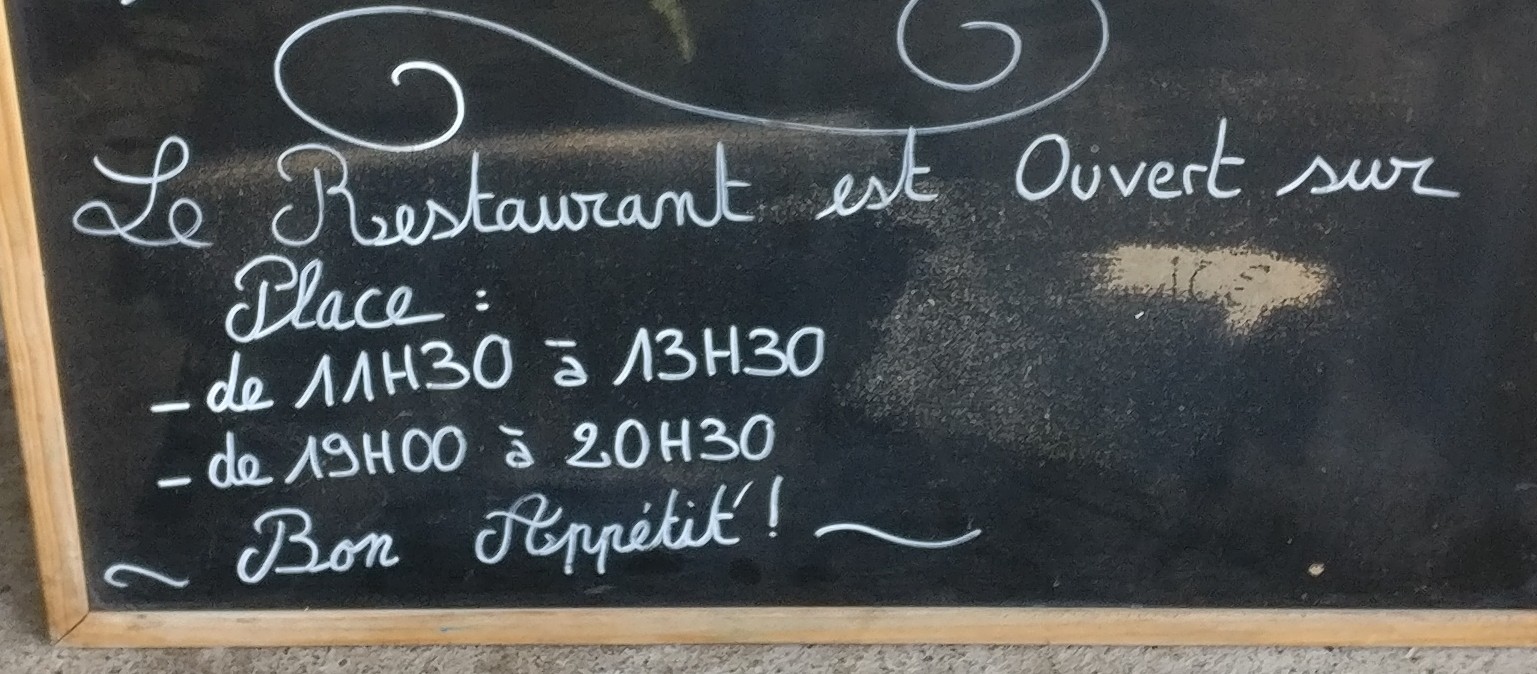 Le Restaurant est Ouvert sur
Place :
- de 11H30 à 13H30
- de 19H00 à 20H30
~ Bon Appétit ! ~